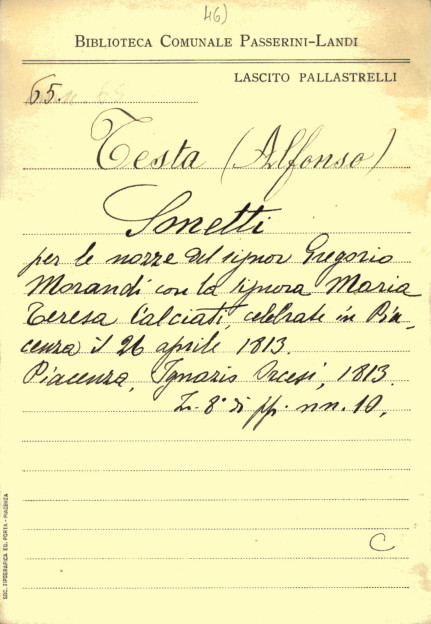 46)
BIBLIOTECA COMUNALE PASSERINI-LANDI
LASCITO PALLASTRELLI
65.
Testa (Alfonso)
Sonetti
per le nozze del signor Gregorio
Morandi con la signora Maria
Teresa Calciati, celebrate in Pia-
cenza il 26 aprile 1813.
Piacenza, Ignazio Orcesi, 1813.
In-8° di pp. nn. 10.
C
SOC. TIPOGRAFICA ED. PORTA - PIACENZA